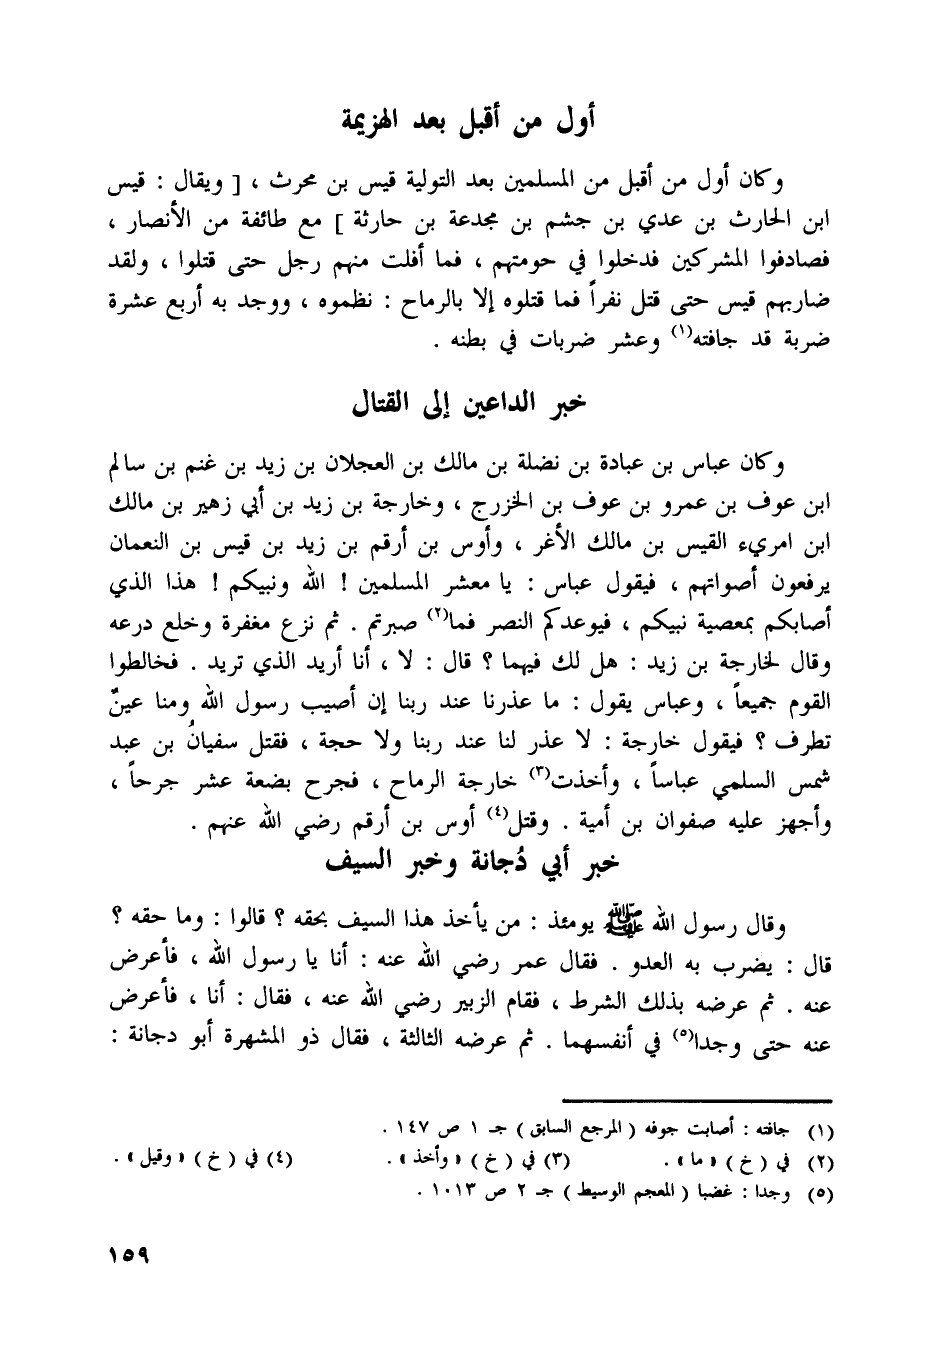 أول من أقبل بعد الهزيمة
وكان أول من أقبل من المسلمين بعد التولية قيس بن محرث ، [ ويقال : قيس
ابن الحارث بن عدي بن جشم بن مجدعة بن حارثة ] مع طائفة من الأنصار ،
فصادفوا المشركين فدخلوا في حومتهم ، فما أفلت منهم رجل حتى قتلوا ، ولقد
ضاربهم قيس حتى قتل نفراً فما قتلوه إلا بالرماح : نظموه ، ووجد به أربع عشرة
ضربة قد جافته(١) وعشر ضربات في بطنه .
خبر الداعين إلى القتال
وكان عباس بن عبادة بن نضلة بن مالك بن العجلان بن زيد بن غنم بن سالم
ابن عوف بن عمرو بن عوف بن الخزرج ، وخارجة بن زيد بن أبي زهير بن مالك
ابن امريء القيس بن مالك الأغر ، وأوس بن أرقم بن زيد بن قيس بن النعمان
يرفعون أصواتهم ، فيقول عباس : يا معشر المسلمين ! الله ونبيكم ! هذا الذي
أصابكم بمعصية نبيكم ، فيوعدكم النصر فما(٢) صبرتم . ثم نزع مغفرة وخلع درعه
وقال لخارجة بن زيد : هل لك فيهما ؟ قال : لا ، أنا أريد الذي تريد . فخالطوا
القوم جميعاً ، وعباس يقول : ما عذرنا عند ربنا إن أصيب رسول الله ومنا عينٌ
تطرف ؟ فيقول خارجة : لا عذر لنا عند ربنا ولا حجة ، فقتل سفيانُ بن عبد
شمس السلمي عباساً ، وأخذت(٣) خارجة الرماح ، فجرح بضعة عشر جرحاً ،
وأجهز عليه صفوان بن أمية . وقتل(٤) أوس بن أرقم رضي الله عنهم .
خبر أبي دُجانة وخبر السيف
وقال رسول الله ﷺ يومئذ : من يأخذ هذا السيف بحقه ؟ قالوا : وما حقه ؟
قال : يضرب به العدو . فقال عمر رضي الله عنه : أنا يا رسول الله ، فأعرض
عنه . ثم عرضه بذلك الشرط ، فقام الزبير رضي الله عنه ، فقال : أنا ، فأعرض
عنه حتى وجدا(٥) في أنفسهما . ثم عرضه الثالثة ، فقال ذو المشهرة أبو دجانة :
(١) جافته : أصابت جوفه ( المرجع السابق ) جـ ١ ص ١٤٧ .
(٢) في ( خ ) « ما » . (٣) في ( خ ) « وأخذ » . (٤) في ( خ ) « وقيل » .
(٥) وجدا : غضبا ( المعجم الوسيط ) جـ ٢ ص ١٠١٣ .
١٥٩